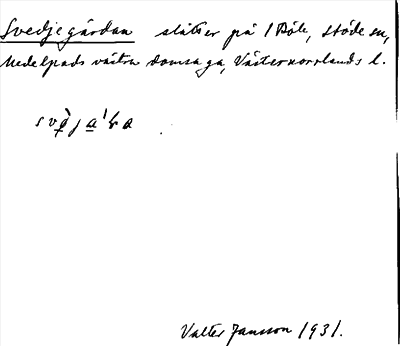 Svedjegårdan slåtter på 1 Böle, Stöde sn,
Medelpads västra domsaga, Västernorrlands l.
Valter Jansson 1931.